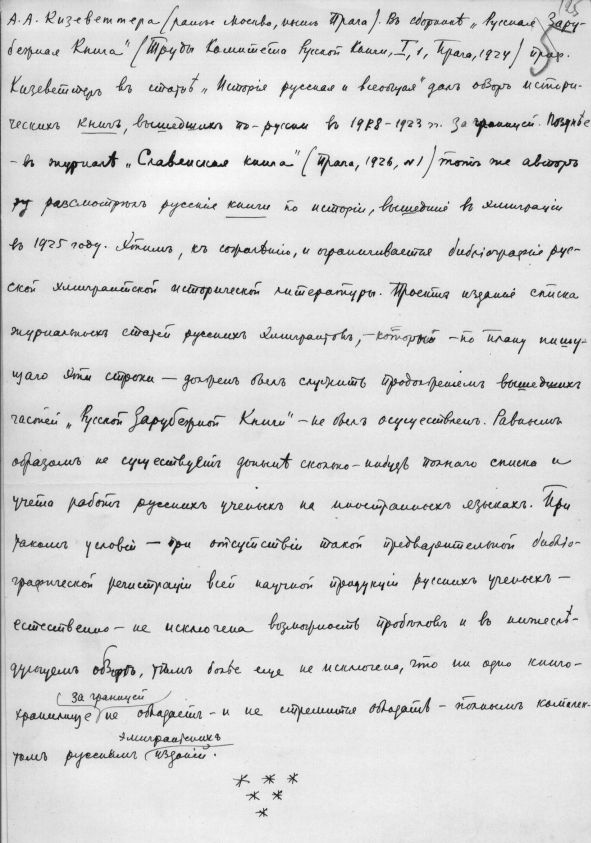 125
5
А.А. Кизеветтера (раньше Москва, нынѣ Прага). Въ сборникѣ „Русская Зару-
бежная Книга" (Труды Комитета Русской Книги, I, 1, Прага, 1924) проф.
Кизеветтеръ въ статьѣ „Исторія русская и всеобщая" далъ обзоръ истори-
ческихъ книгъ, вышедшихъ по-русски въ 1918-1923 гг. за границей. Позднѣе
- въ журналѣ „Славянская книга" (Прага, 1926, №1) тотъ же авторъ
разсмотрѣлъ русскія книги по исторіи, вышедшія въ эмиграціи
въ 1925 году. Этимъ, къ сожалѣнію, и ограничивается библіографія рус-
ской эмигрантской исторической литературы. Проектъ изданія списка
журнальныхъ статей русскихъ эмигрантовъ, - который - по плану пишу-
щаго эти строки — долженъ былъ служить продолженіемъ вышедшихъ
частей „Русской Зарубежной Книги" - не былъ осуществленъ. Равнымъ
образомъ не существуетъ донынѣ сколько-нибудь полнаго списка и
учета работъ русскихъ ученыхъ на иностранныхъ языкахъ. При
такомъ условіи — при отсутствіи такой предварительной библіо-
графической регистраціи всей научной продукціи русскихъ ученыхъ —
естественно - не исключена возможность пробѣловъ и въ нижеслѣ-
дующемъ обзорѣ, тѣмъ болѣе еще не исключена, что ни одно книго-
за границей
хранилище не обладаетъ - и не стремится обладать - полнымъ комплек-
эмигрантскихъ
томъ русскихъ изданій.
* * *
* *
*